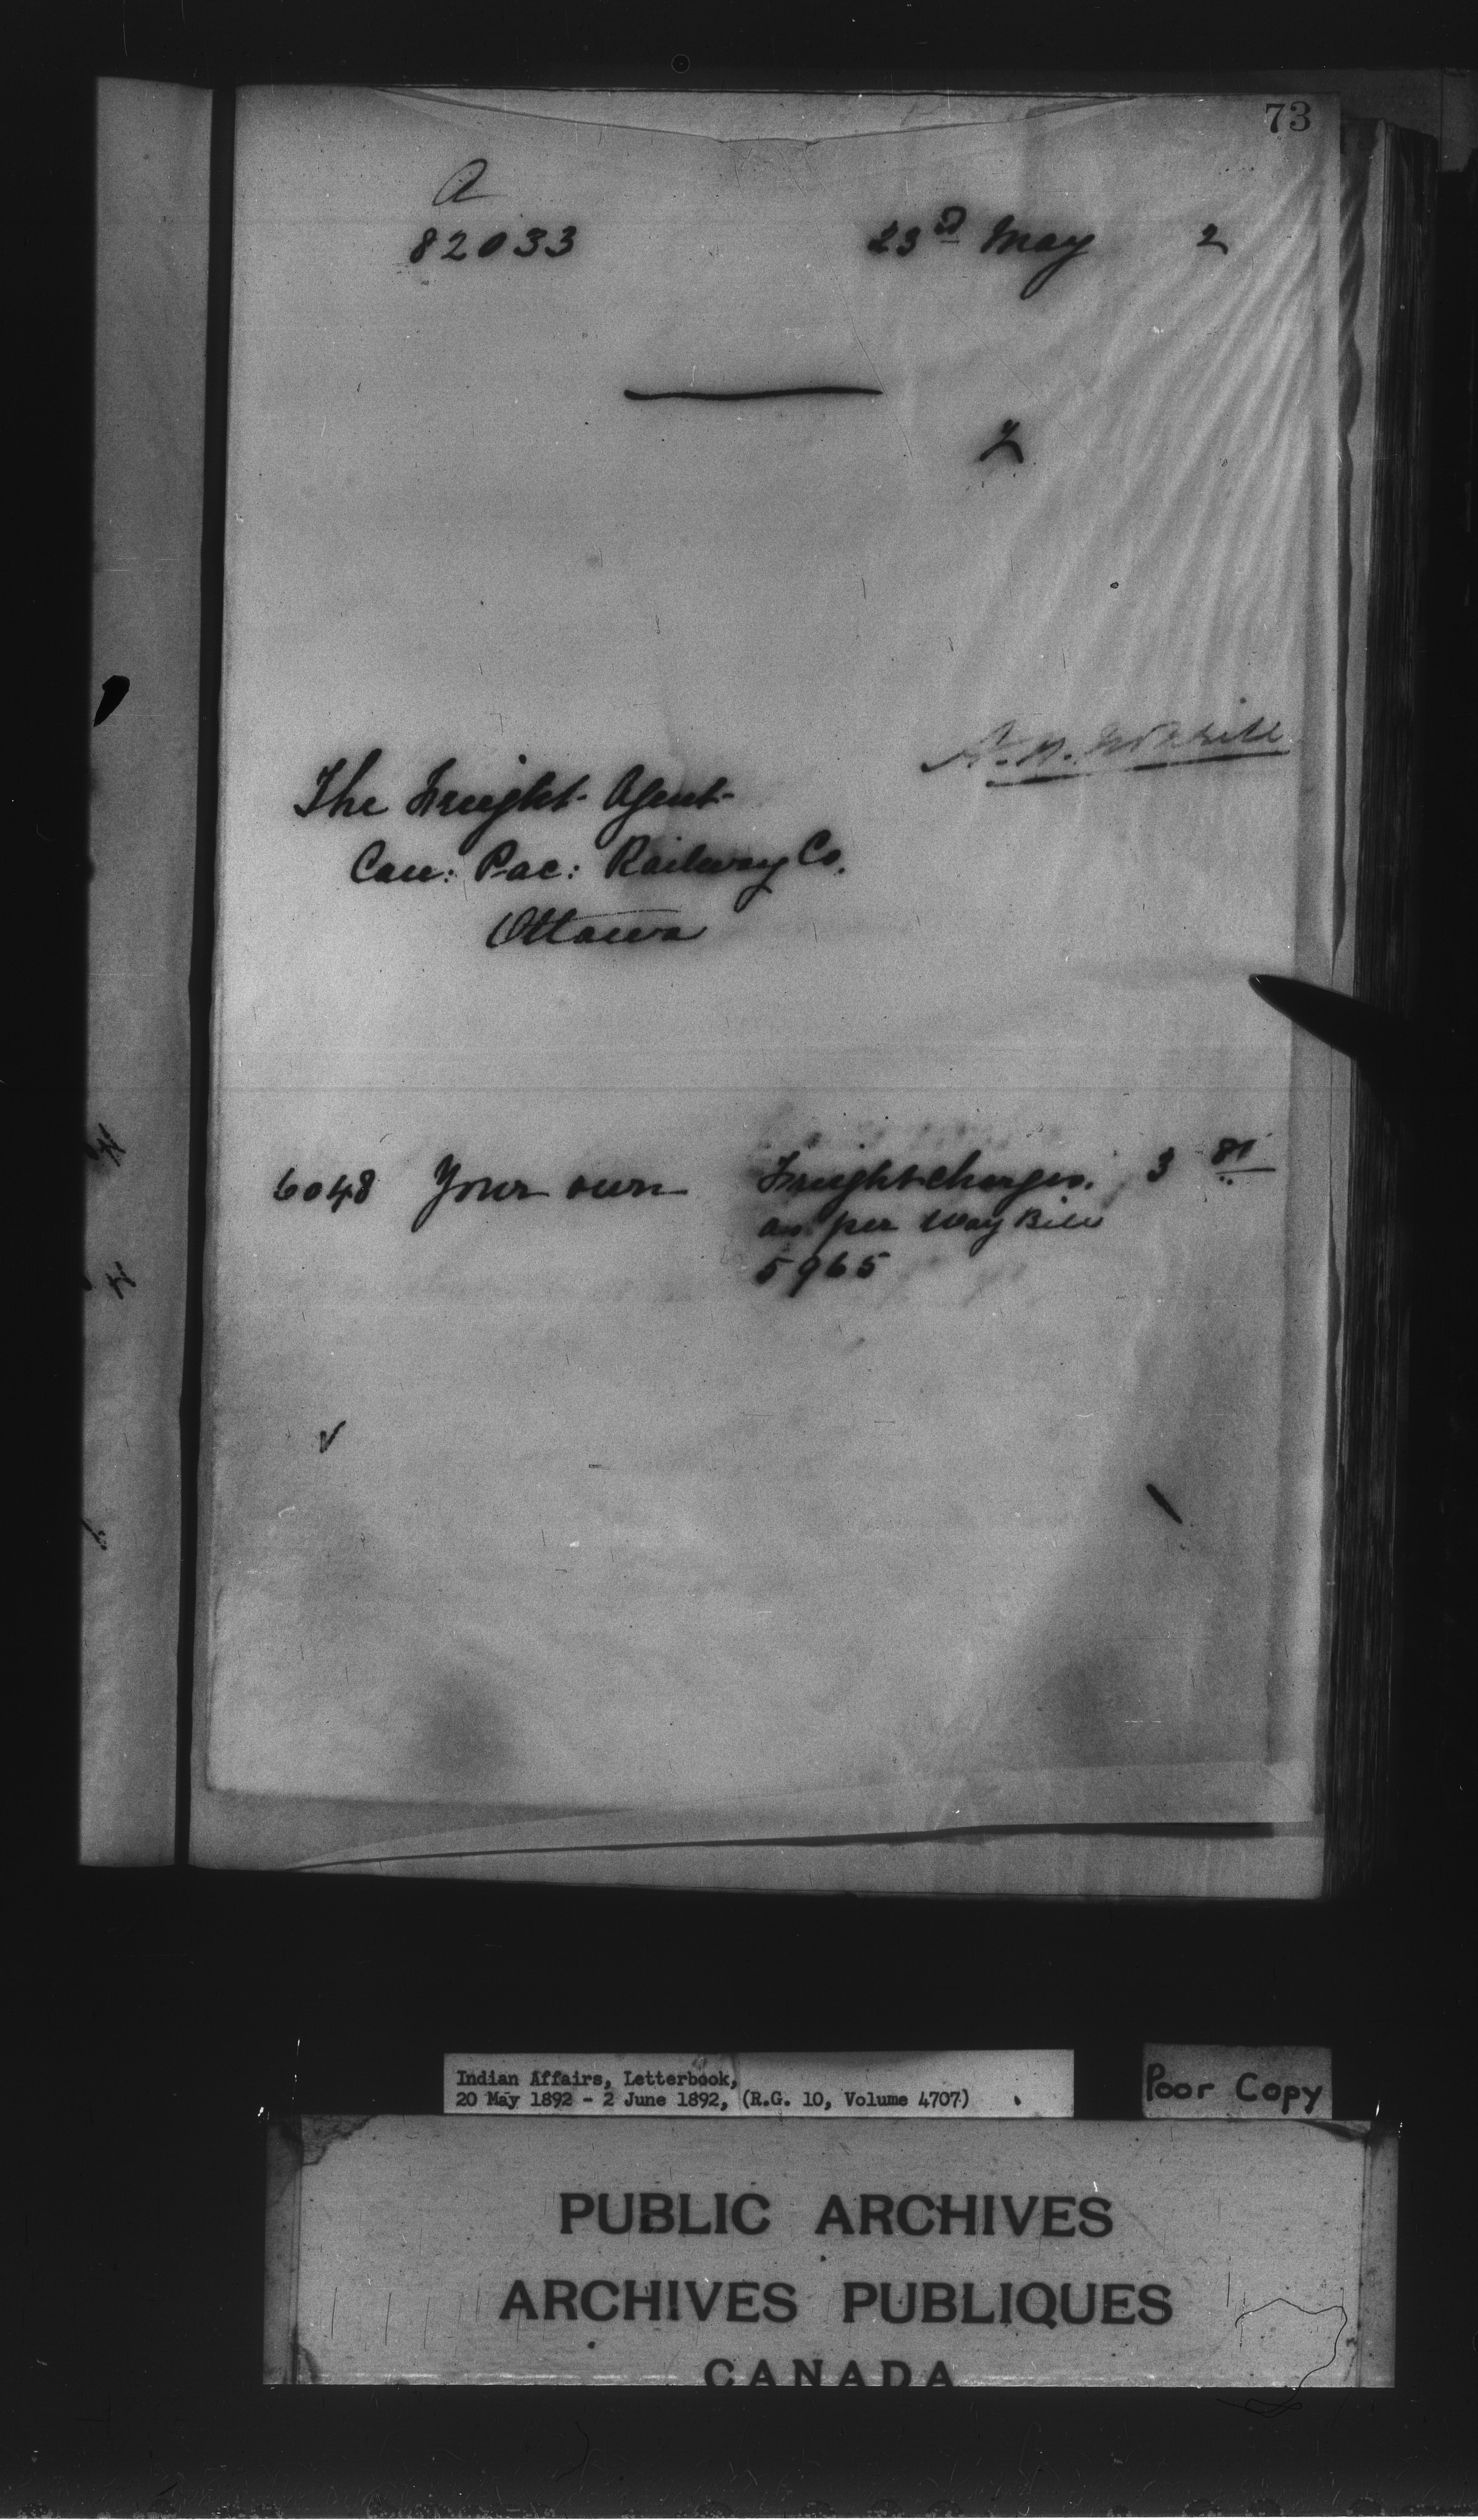 73
A
82033 23d May 2
2
The Freight Agent
Can: Pac: Railway Co.
Ottawa
6048 Your own Freight charges. 3 81
as per Way Bill
5965
Indian Affairs, Letterbook,
20 May 1892 - 2 June 1892, (R.G. 10, Volume 4707)
Poor Copy
PUBLIC ARCHIVES
ARCHIVES PUBLIQUES
CANADA